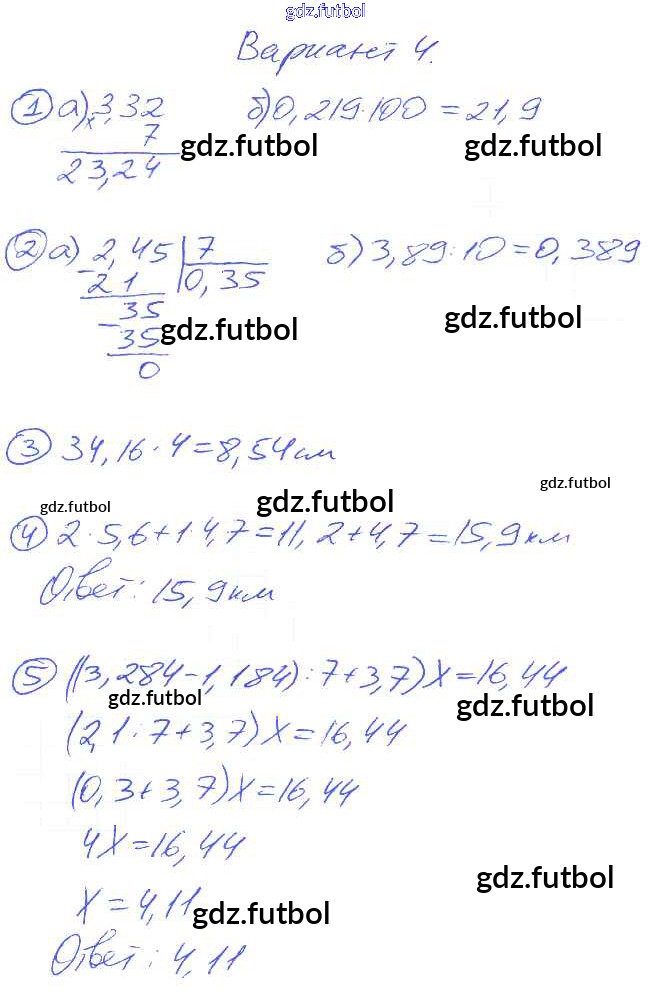 gdz.futbol
Вариант 4.
① а) × 3,32 б) 0,219·100 = 21,9
7
gdz.futbol gdz.futbol
23,24
② а) 2,45 | 7 б) 3,89:10=0,389
- 21 0,35
35
gdz.futbol
- 35 gdz.futbol
0
③ 34,16 · 4 = 8,54 см
gdz.futbol
gdz.futbol gdz.futbol
④ 2·5,6+1·4,7=11,2+4,7=15,9 км
Ответ: 15,9 км
⑤ ((3,284-1,184):7+3,7)X=16,44
gdz.futbol gdz.futbol
(2,1:7+3,7)X=16,44
(0,3+3,7)X=16,44
4X=16,44
gdz.futbol
X=4,11
gdz.futbol
Ответ: 4,11